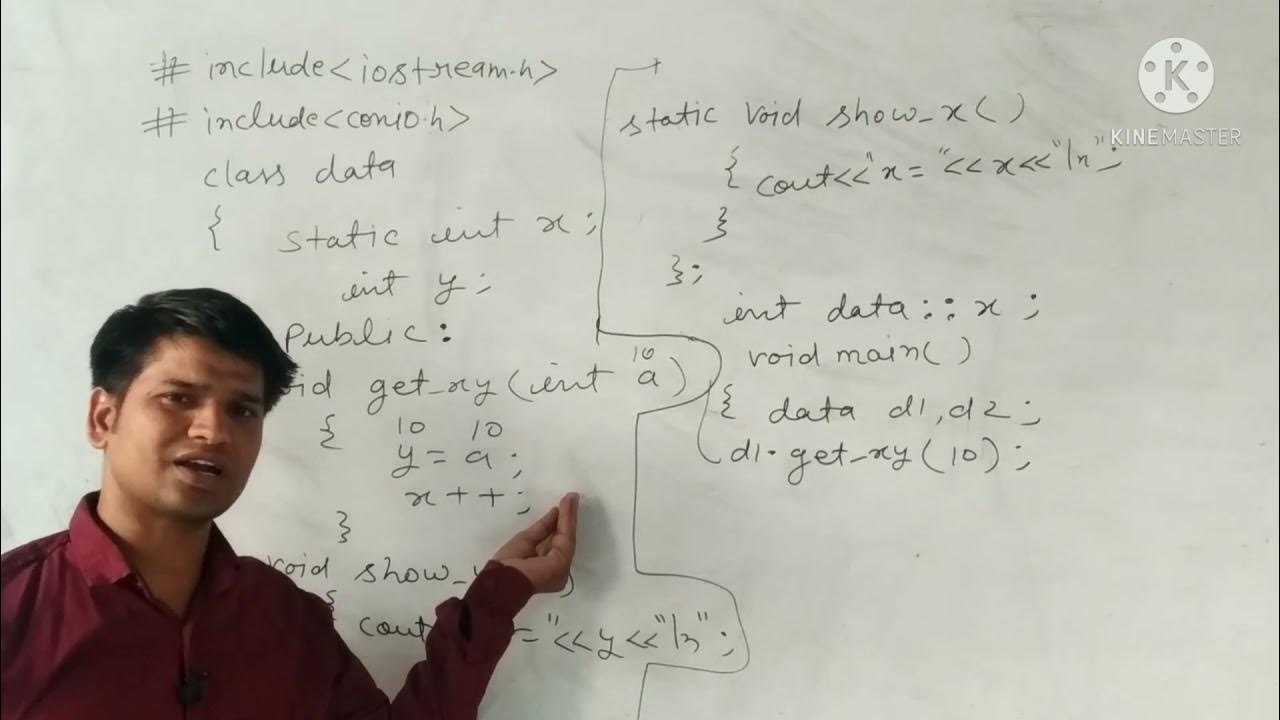 # include<iostream.h>
# include<conio.h>
class data
{ static int x ;
int y ;
Public :
get_xy (int a)
10
{
10 10
y = a ;
x + + ;
}
void show_
{ cout
= "<< y << "\n" ;
static void show_x( )
{ cout<<"x = "<< x << "\n" ;
}
} ;
int data :: x ;
void main( )
{ data d1 , d2 ;
d1. get_xy ( 10 ) ;
K
KINEMASTER